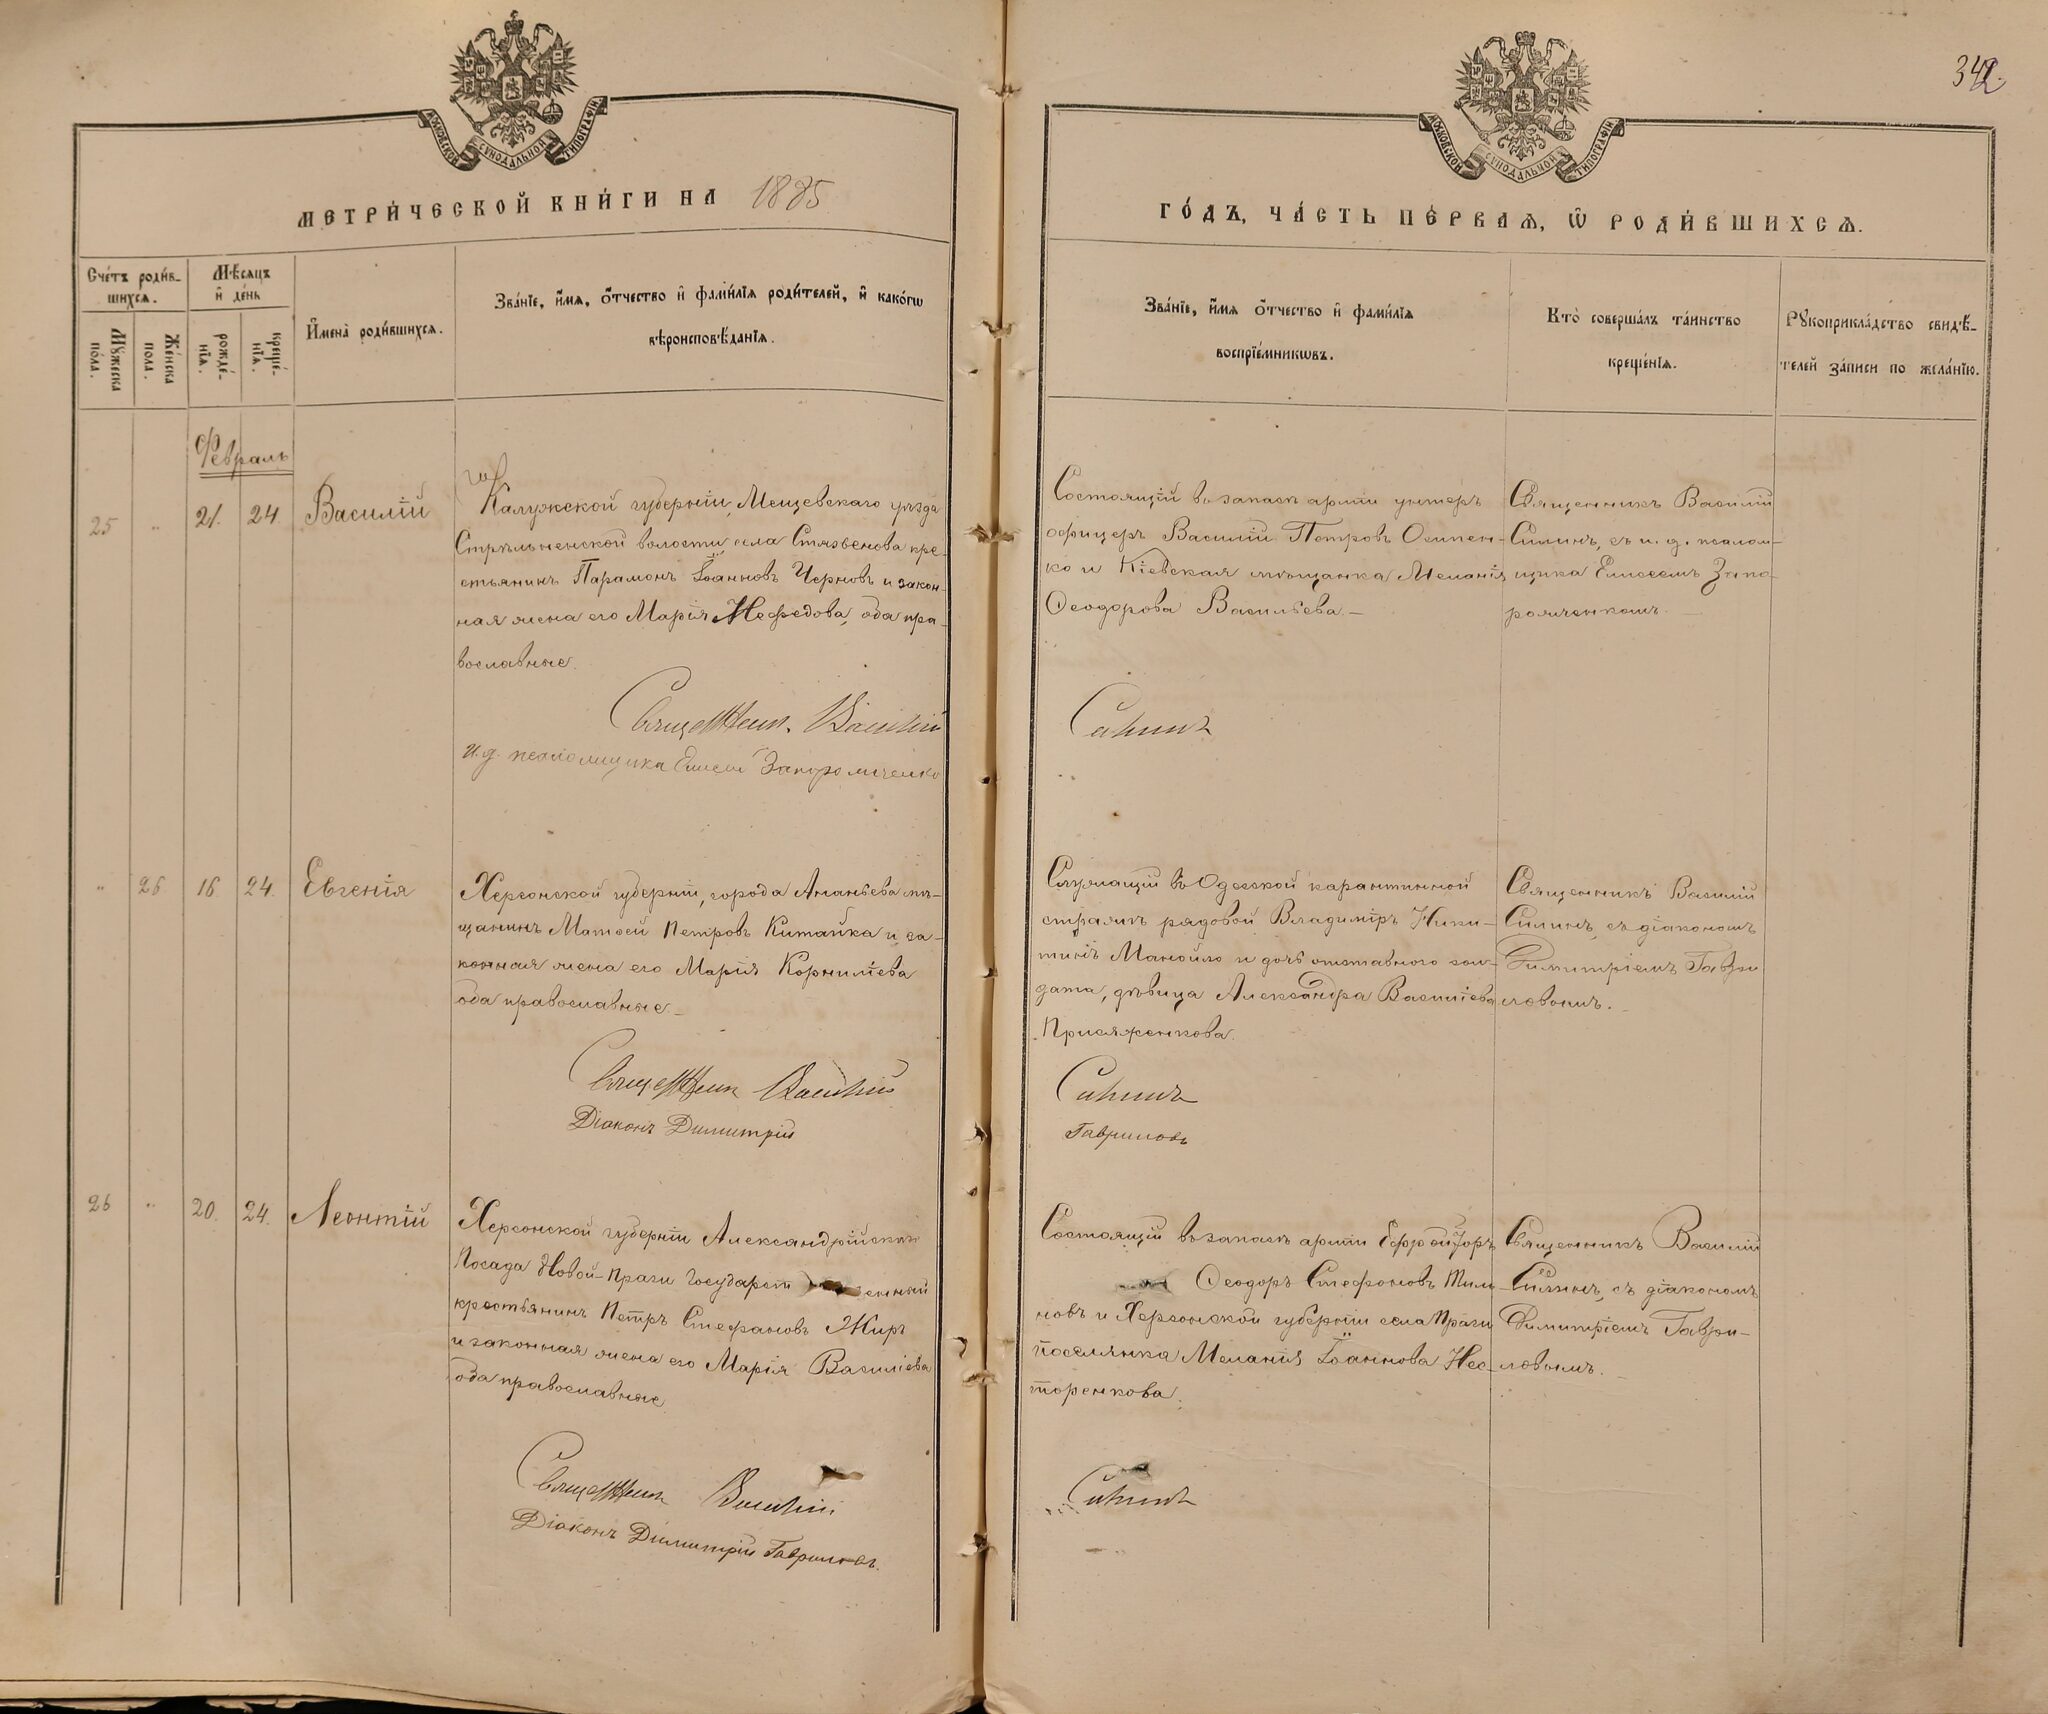 342.
МОСКОВСКОЙ СѴНОДАЛЬНОЙ ТИПОГРАФІИ
МОСКОВСКОЙ СѴНОДАЛЬНОЙ ТИПОГРАФІИ
МЕТРИ́ЧЕСКОЙ КНИ́ГИ НА 1885
ГО́ДЪ, ЧА́СТЬ ПЕ́РВАѦ, Ѡ҆ РОДИ́ВШИХСѦ.
Сче́тъ роди́в-
шихсѧ.
Мꙋ́жеска по́ла.
Же́нска пола.
Мѣ́сѧцъ
и҆ де́нь
рожде́-
нїѧ.
креще́-
нїѧ.
И҆мена̀ роди́вшихсѧ.
Зва́нїе, и҆́мѧ, ѻ҆́тчество и҆ фами́лїѧ роди́телей, и҆ како́гѡ
вѣроисповѣ́данїѧ.
Зва́нїе, и҆́мѧ ѻ҆́тчество и҆ фами́лїѧ
воспрїе́мникѡвъ.
Кто̀ соверша́лъ та́инство
креще́нїѧ.
Рꙋкоприкла́дство свидѣ́-
телей за́писи по жела́нїю.
Февраль
25 " 21. 24. Василій
Калужской губерніи, Мещевскаго уѣзда
Стрѣльненской волости, села Стязвенова кре-
стьянинъ Парамонъ Іоанновъ Черновъ и закон-
ная жена его Марія Несфедова, оба пра-
вославные.
Священник. Василій
и. д. псаломщика Елисей Запорожченко
Состоящій въ запасѣ арміи унтеръ
офицеръ Василій Петровъ Осипен-
ко и Кіевская мѣщанка Меланія
Ѳеодорова Васильева.–
Силинъ
Священникъ Василій
Силинъ, съ и. д. псалом-
щика Елисеемъ Запо-
рожченкомъ.
" 26. 16. 24. Евгенія
Херсонской губерніи, города Ананьева мѣ-
щанинъ Матѳей Петровъ Китайка и за-
конная жена его Марія Корниліева
оба православные–
Священник Василій
Діаконъ Димитрій
Служащій въ Одесской карантинной
стражѣ рядовой Владиміръ Ники-
тинъ Манойло и дочь отставного сол-
дата, дѣвица Александра Василіева
Присяженкова.
Силинъ
Гавриловъ
Священникъ Василій
Силинъ, съ діакономъ
Димитріемъ Гаври
ловымъ.
26 " 20. 24. Леонтій
Херсонской губерніи Александрійскаго
Посада Новой-Праги Государст венный
крестьянинъ Петръ Стефановъ Жиръ
и законная жена его Марія Василіева
оба православные
Священник Василій
Діаконъ Димитрій Гавриловъ.
Состоящій въ запасѣ арміи Ефрейторъ
Ѳеодоръ Стефановъ Тили
новъ и Херсонской губерніи села Праги
поселянка Меланія Іоаннова Нес-
торенкова.
Силинъ
Священникъ Василій
Силинъ, съ діакономъ
Димитріемъ Гаври-
ловымъ.